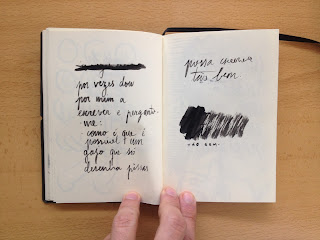 por vezes dou
por mim a
escrever e pergunto-
me:
- como é que é
possível um
gajo que só
desenha pissas
possa escrever
tão bem